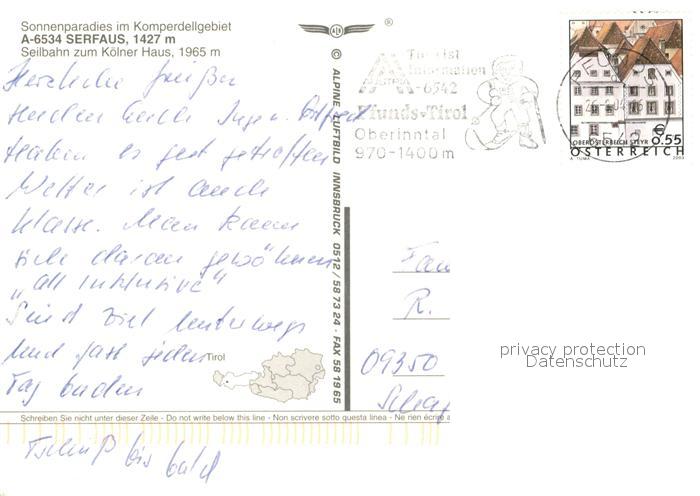 Sonnenparadies im Komperdellgebiet
A-6534 SERFAUS, 1427 m
Seilbahn zum Kölner Haus, 1965 m
Herzliche Grüße
haben es gut getroffen
Wetter ist auch
klasse. Man kann
sich daran gewöhnen
„all Inklusive“
Sind viel unterwegs
und fast jeden
Tag baden
Tschuß bis bald
© ALPINE LUFTBILD INNSBRUCK 0512/58 73 24 · FAX 58 19 65
Tirol
Schreiben Sie nicht unter dieser Zeile - Do not write below this line - Non scrivere sotto questa linea - Ne rien écrire
Tourist
Information
AUSTRIA
A-6542
Pfunds-Tirol
Oberinntal
970-1400m
OBERÖSTERREICH STEYR
€ 0.55
ÖSTERREICH
A. TUMA
2003
Fam
R.
09350
privacy protection
Datenschutz